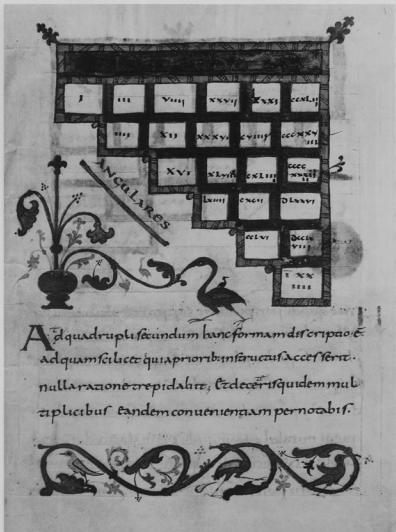 I III VIIII XXVII
IIII XII XXXVI
XVI
LXIIII CXCII DLXXVI
CCLVI DCCLX VIII
I XX IIII
ANGULARES
Ad quadrupli secundum hanc formam discriptio. E.
ad quam scilicet qui a priorib; instructus accesserit.
nulla ratione trepidabit; Et deceteris quidem mul
tiplicibus eandem convenientiam pernotabis.